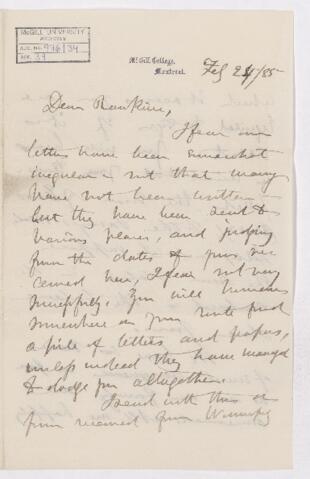 McGILL UNIVERSITY
ARCHIVES
ACC. NO. 976/34
REF. 39
McGill College,
Montreal.
Feb 24/85
Dear Rankine,
I fear our
letters have been somewhat
irregular - not that many
have not been written
but they have been sent to
various places, and judging
from the dates of yours re-
ceived here, I fear not very
successfully. You will however
somewhere on your route find
a pile of letters and papers,
unless indeed they have managed
to dodge you altogether.
I send with this
from received from Winnipeg